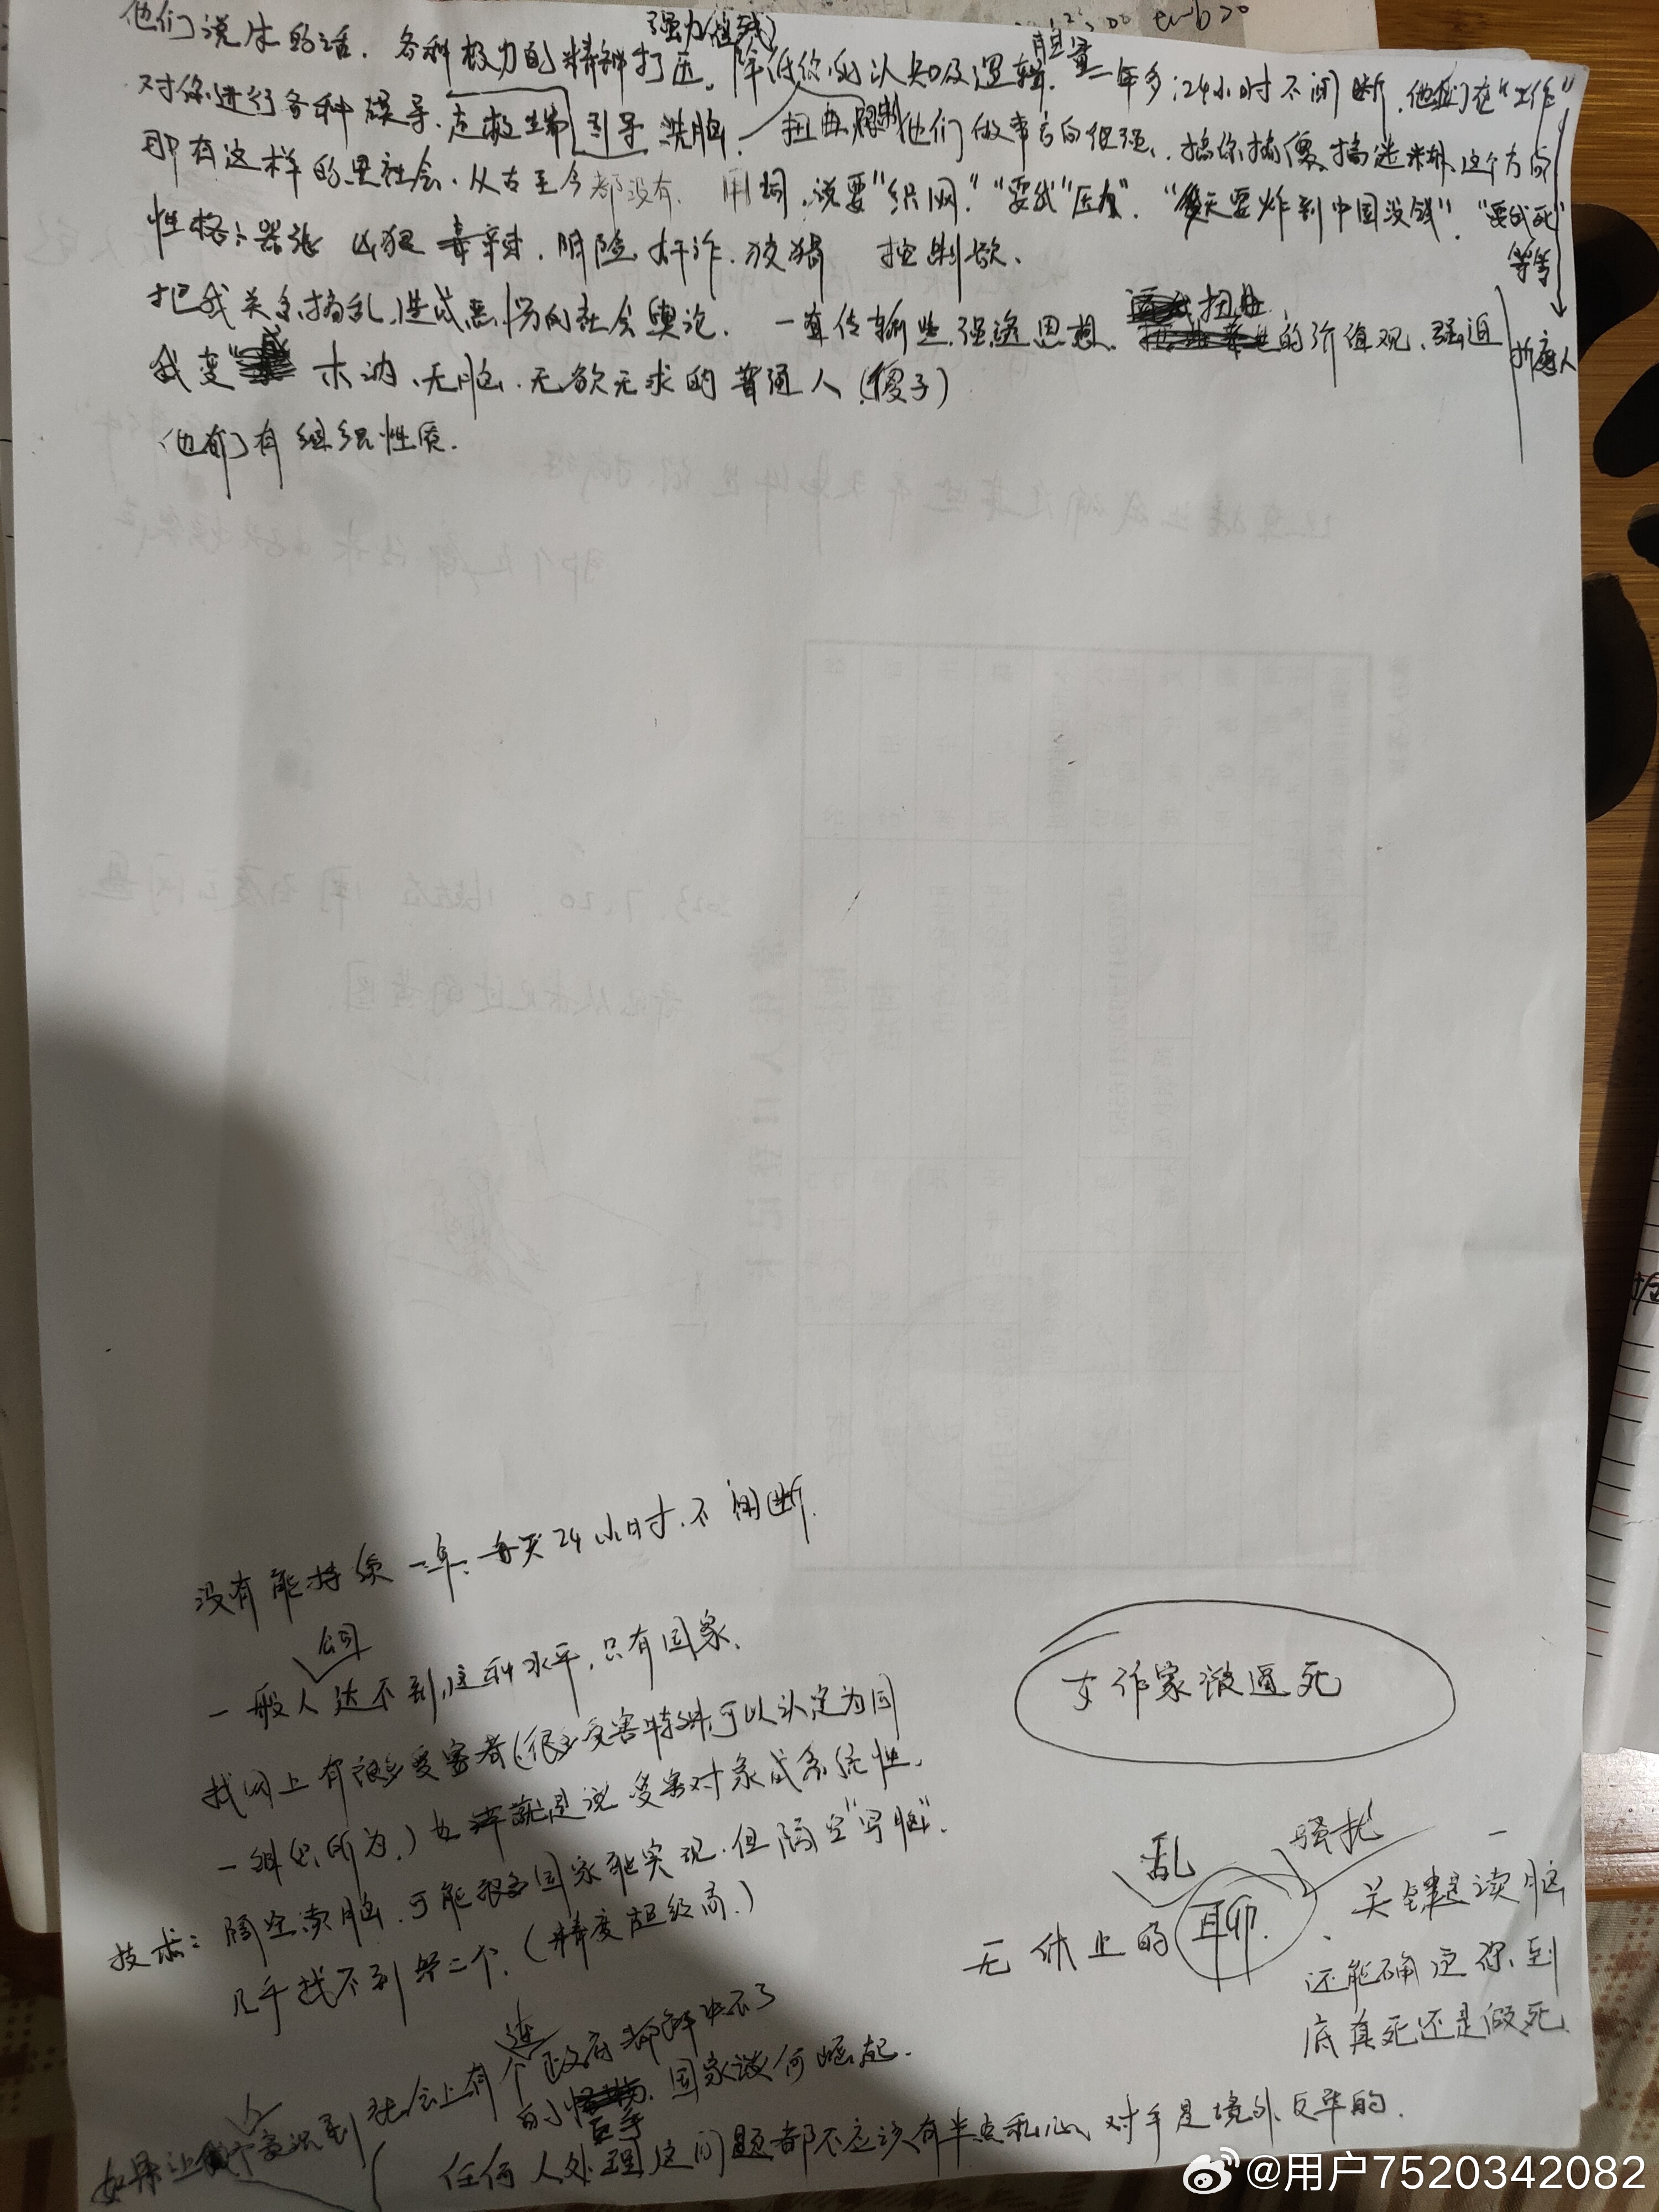 他们说出的话. 各种极力的精神打压. 降低你的认知及逻辑. 胆量 一年多;24小时不间断. 他们在"工作"
强力(值残)
对你进行各种误导. 走极端 引导 洗脑. 扭曲 他们做事方向很强. 搞你搞傻. 搞迷糊. 这个方向
那有这样的黑社会. 从古至今都没有. 用词. 说要"织网". "要我""压力". "每天要炸到中国没钱". "要我死"
等等
性格: 嚣张 凶狠 毒辣. 阴险 奸诈. 狡猾 控制欲.
把我关系搞乱, 造成恶劣的社会舆论. 一直传输些 思想. 扭曲
的价值观. 强迫 折磨人
我变成 木讷. 无脑. 无欲无求的普通人(傻子)
他们有组织性质.
没有能持续一年. 每天24小时. 不间断.
公司
一般人达不到这种水平, 只有国家.
找网上有很多受害者(很多受害特殊可以认定为同
一组织所为.) 也就是说 受害对象成系统性.
技术: 隔空读脑. 可能很多国家能实现. 但隔空"写脑".
几乎找不到第二个. (精度超级高.)
女作家被逼死
乱 骚扰
无休止的聊. 关键是读脑
还能确定你到
底真死还是假死
如果让 意识到 社会上有个连政府都解决不了
的 国家谈何崛起.
任何人处理这问题都不应该有半点私心, 对手是境外反华的.
@用户7520342082